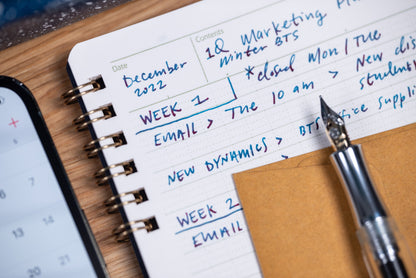 Date
Contents
December
2022
1Q Marketing
Winter BTS
*closed Mon/Tue
WEEK 1
EMAIL > Tue 10 am > New
student
> BTS office suppli
NEW DYNAMICS >
WEEK 2
EMAIL
+
6
7
13
14
20
21